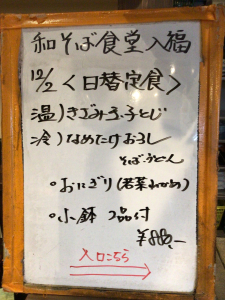 和そば食堂入福
12/2 <日替定食>
温)きざみ玉子とじ
冷)なめたけおろし
そば・うどん
。おにぎり(若菜わかめ)
。小鉢 2品付
入口こちら